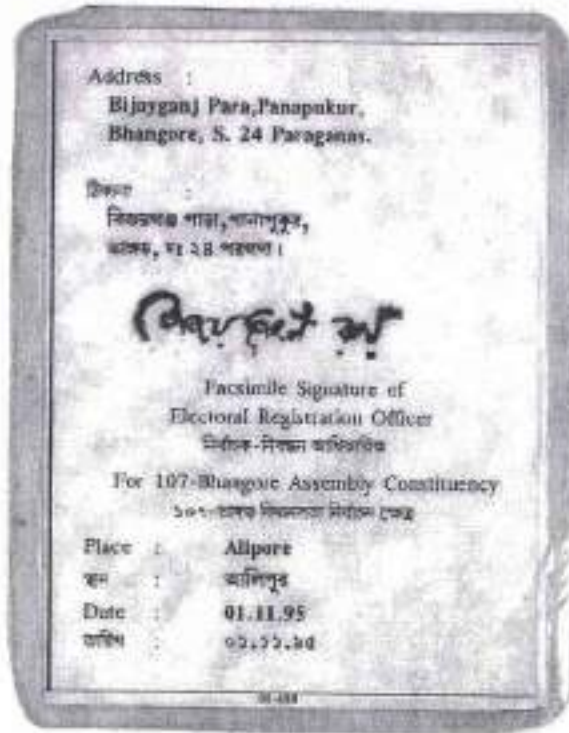 Address :
Bijoyganj Para,Panapukur,
Bhangore, S. 24 Paraganas.
ঠিকানা :
বিজয়গঞ্জ পাড়া,পানাপুকুর,
ভাঙ্গড়, দঃ ২৪ পরগনা।
Facsimile Signature of
Electoral Registration Officer
নির্বাচক-নিবন্ধন আধিকারিক
For 107-Bhangore Assembly Constituency
১০৭-ভাঙ্গড় বিধানসভা নির্বাচন ক্ষেত্র
Place : Alipore
স্থান : আলিপুর
Date : 01.11.95
তারিখ : ০১.১১.৯৫